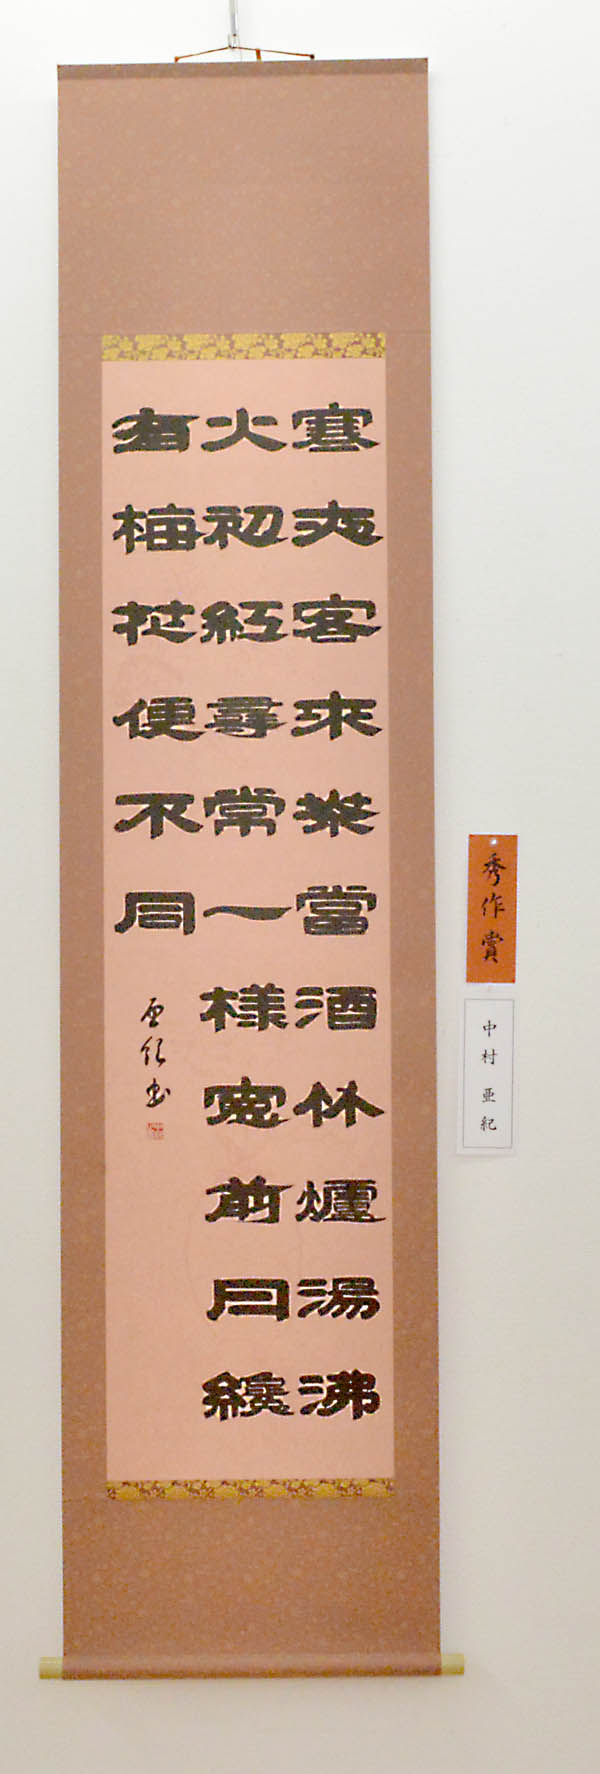 寒夜客來茶當酒竹爐湯沸
火初紅尋常一様窓前月纔
有梅花便不同
亜紀書
秀作賞
中村 亜紀